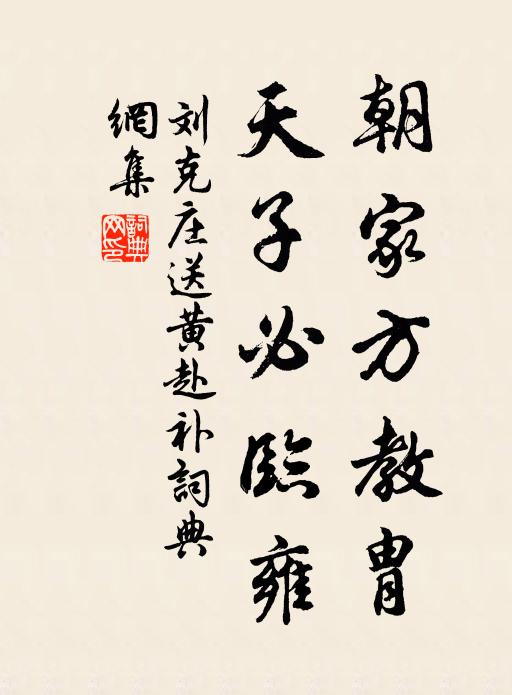 朝家方教胄
天子必臨雍
刘克庄送黄赴补詞典
網集
詞典網印